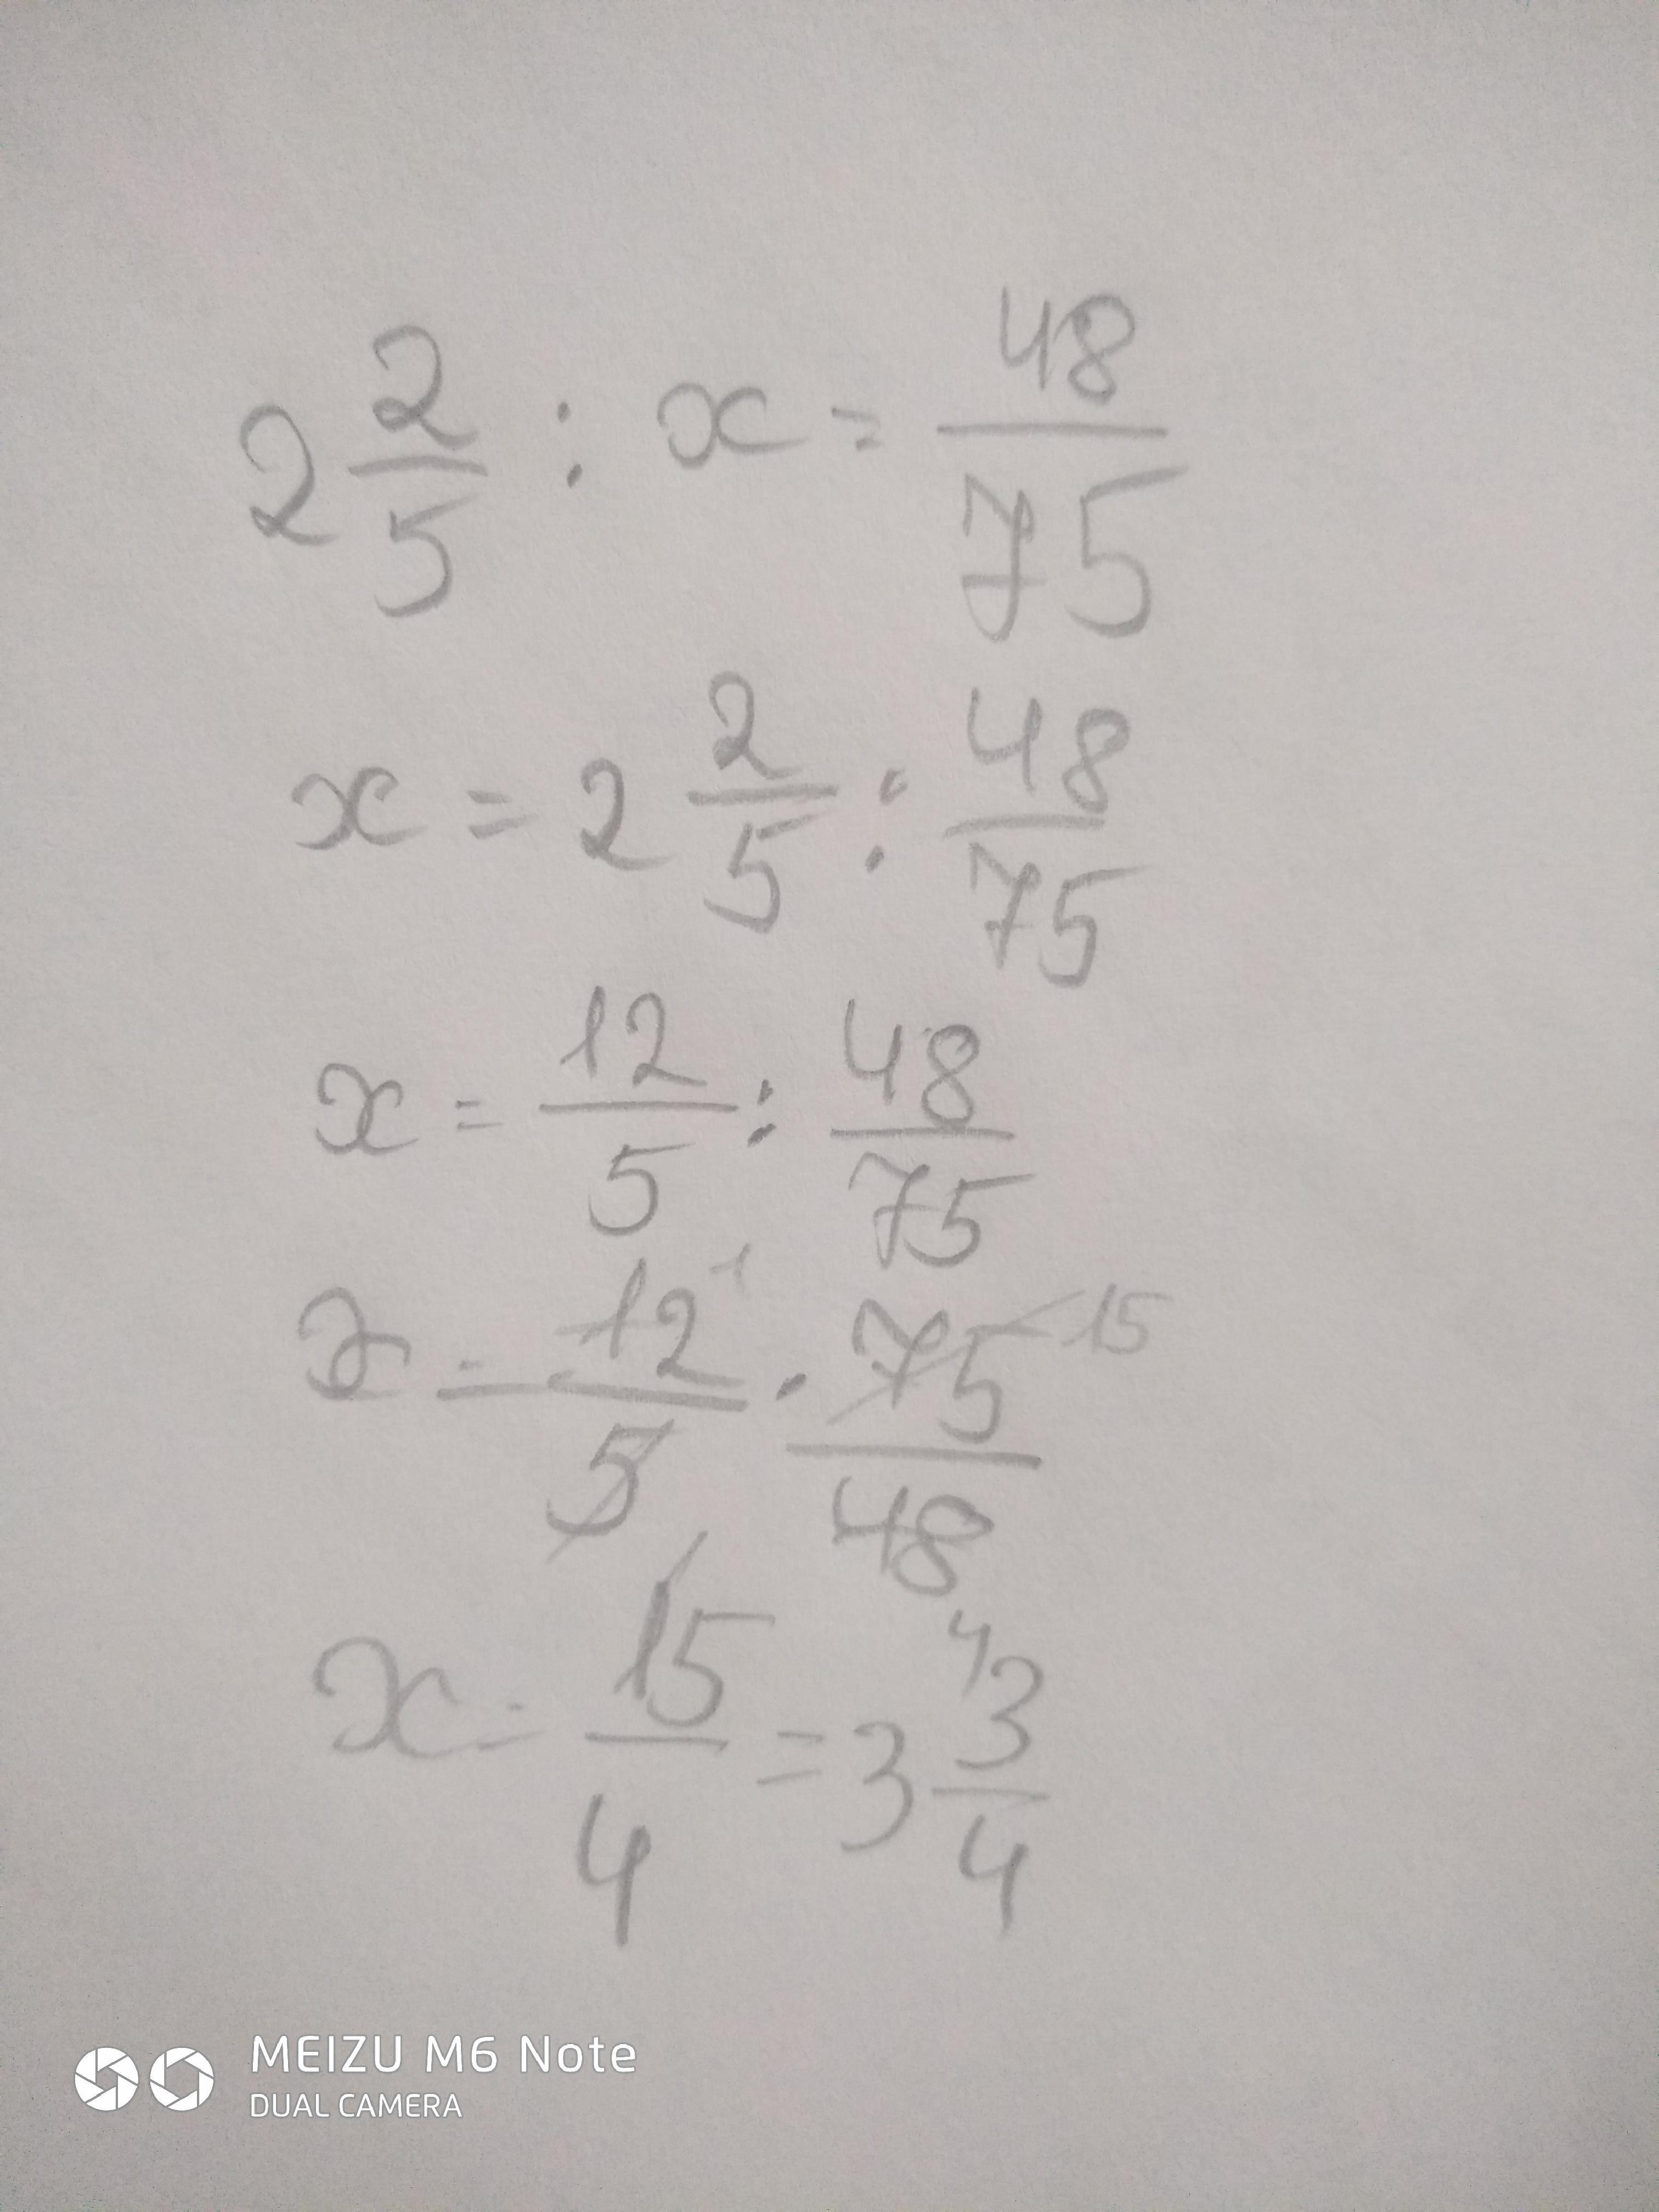 2 2/5 : x = 48/75
x = 2 2/5 : 48/75
x = 12/5 : 48/75
x = 12/5 1 · 75/48 15
x = 15/4 = 3 3/4
1 4
MEIZU M6 Note
DUAL CAMERA